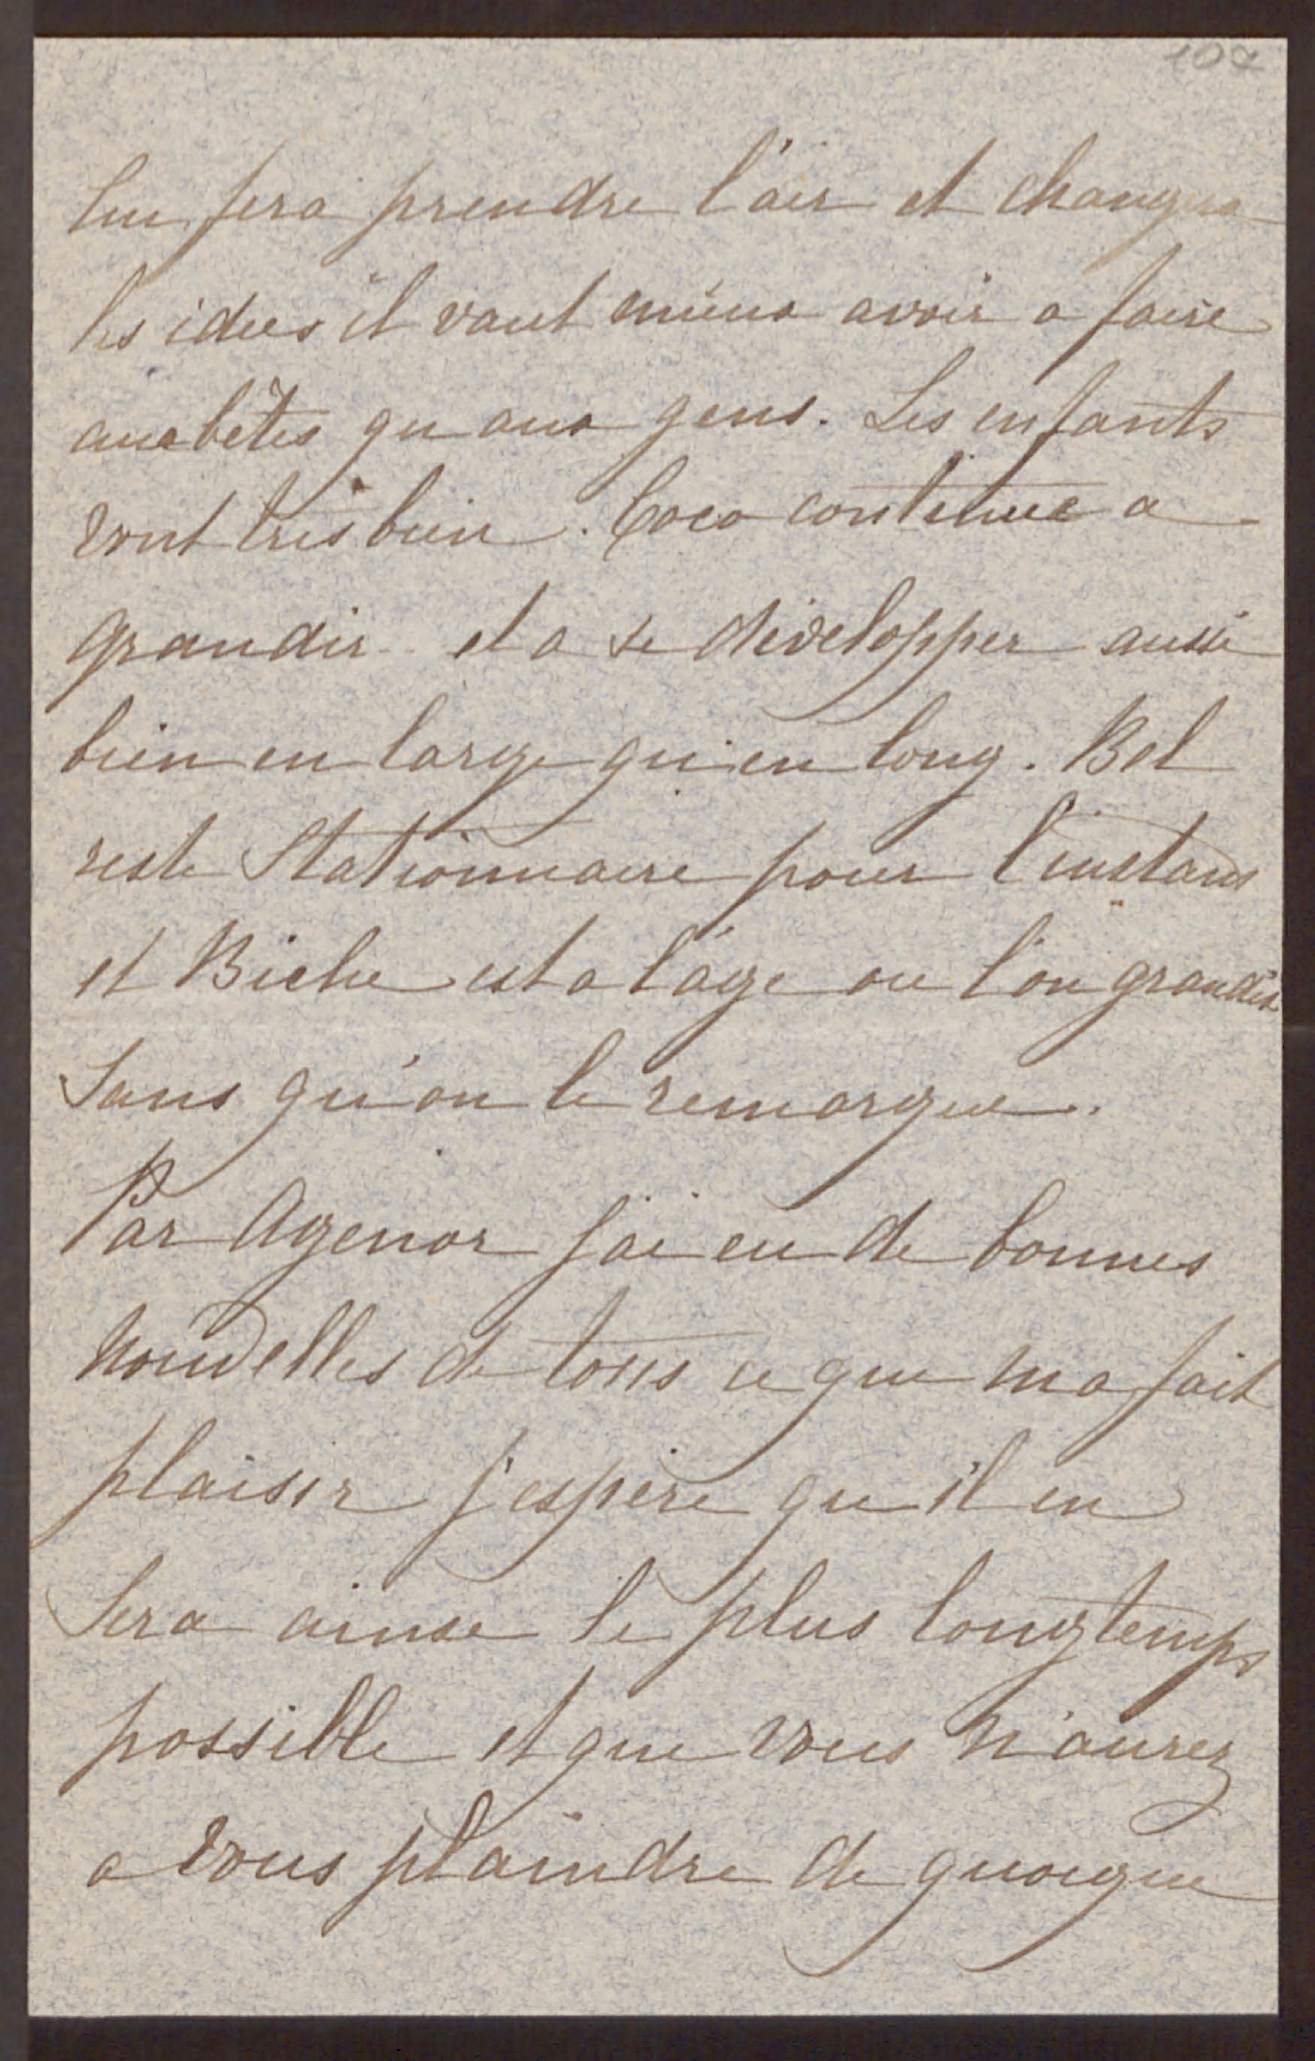 107
lui fera prendre l'air et changera
les idees il vaut mieux avoir a faire
aux bêtes qu aux gens. Les enfants
vont très bien. Coco continue a
grandir et a se développer aussi
bien en large qu'en long. Bel
reste Stationnaire pour l'instant
et Biche est a l'âge ou l'on grandit
Sans qu'on le remarque.
Par Agenor j'ai eu de bonnes
Nouvelles de tous ce que m a fait
plaisir j'espère qu'il en
Sera ainsi le plus longtemps
possible et que vous n'aurez
a vous plaindre de quoique